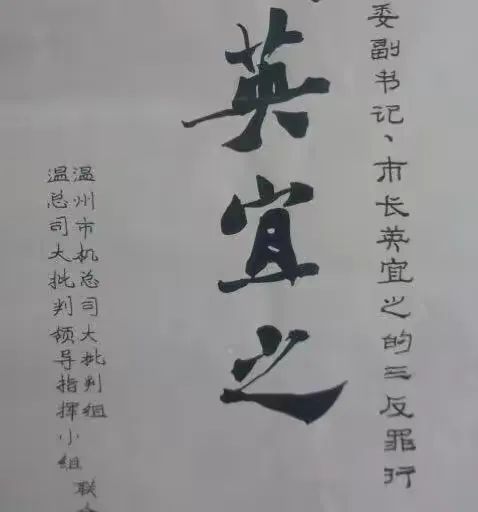 委副书记、市长英宜之的三反罪行
英宜之
温州市机总司大批判组
温总司大批判领导指挥小组
联